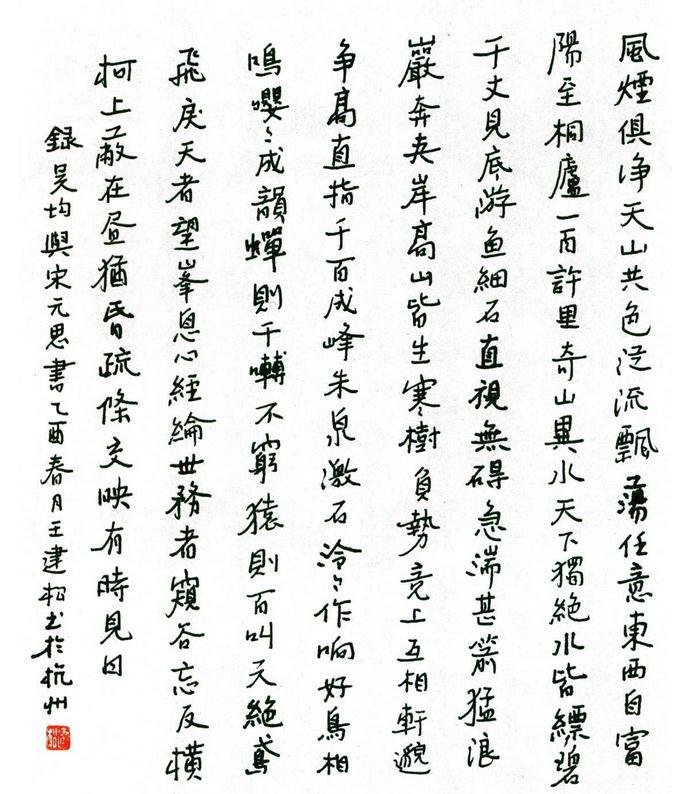 風煙俱浄天山共色從流飄蕩任意東西自富
陽至桐廬一百許里奇山異水天下獨絶水皆縹碧
千丈見底游鱼細石直視無碍急湍甚箭猛浪
巖奔夹岸高山皆生寒樹負勢竞上互相軒邈
争高直指千百成峰朱泉激石泠〻作响好鳥相
鳴嚶〻成韻蟬則千囀不窮猿則百叫无絶鳶
飛戾天者望峯息心經綸世務者窺谷忘反横
柯上蔽在昼猶昏疏條交映有時見日
録吴均與宋元思書乙酉春月王建松书於杭州